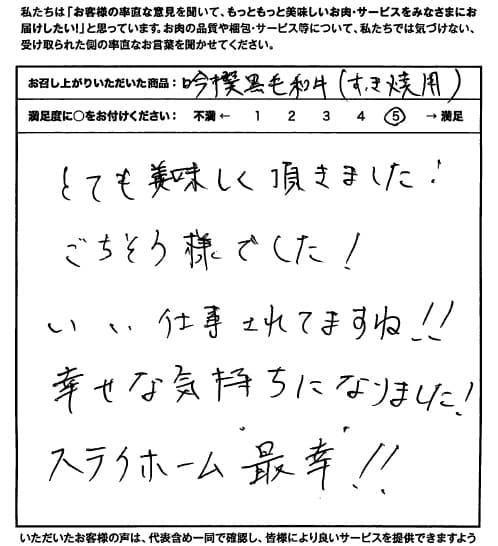 私たちは「お客様の率直な意見を聞いて、もっともっと美味しいお肉・サービスをみなさまにお
届けしたい！」と思っています。お肉の品質や梱包・サービス等について、私たちでは気づけない、
受け取られた側の率直なお言葉を聞かせてください。
お召し上がりいただいた商品： 吟撰黒毛和牛(すき焼用)
満足度に○をお付けください： 不満 ← 1 2 3 4 5 → 満足
とても美味しく頂きました！
ごちそう様でした！
いい仕事されてますね!!
幸せな気持ちになりました！
ステイホーム最幸!!
いただいたお客様の声は、代表含め一同で確認し、皆様により良いサービスを提供できますよう